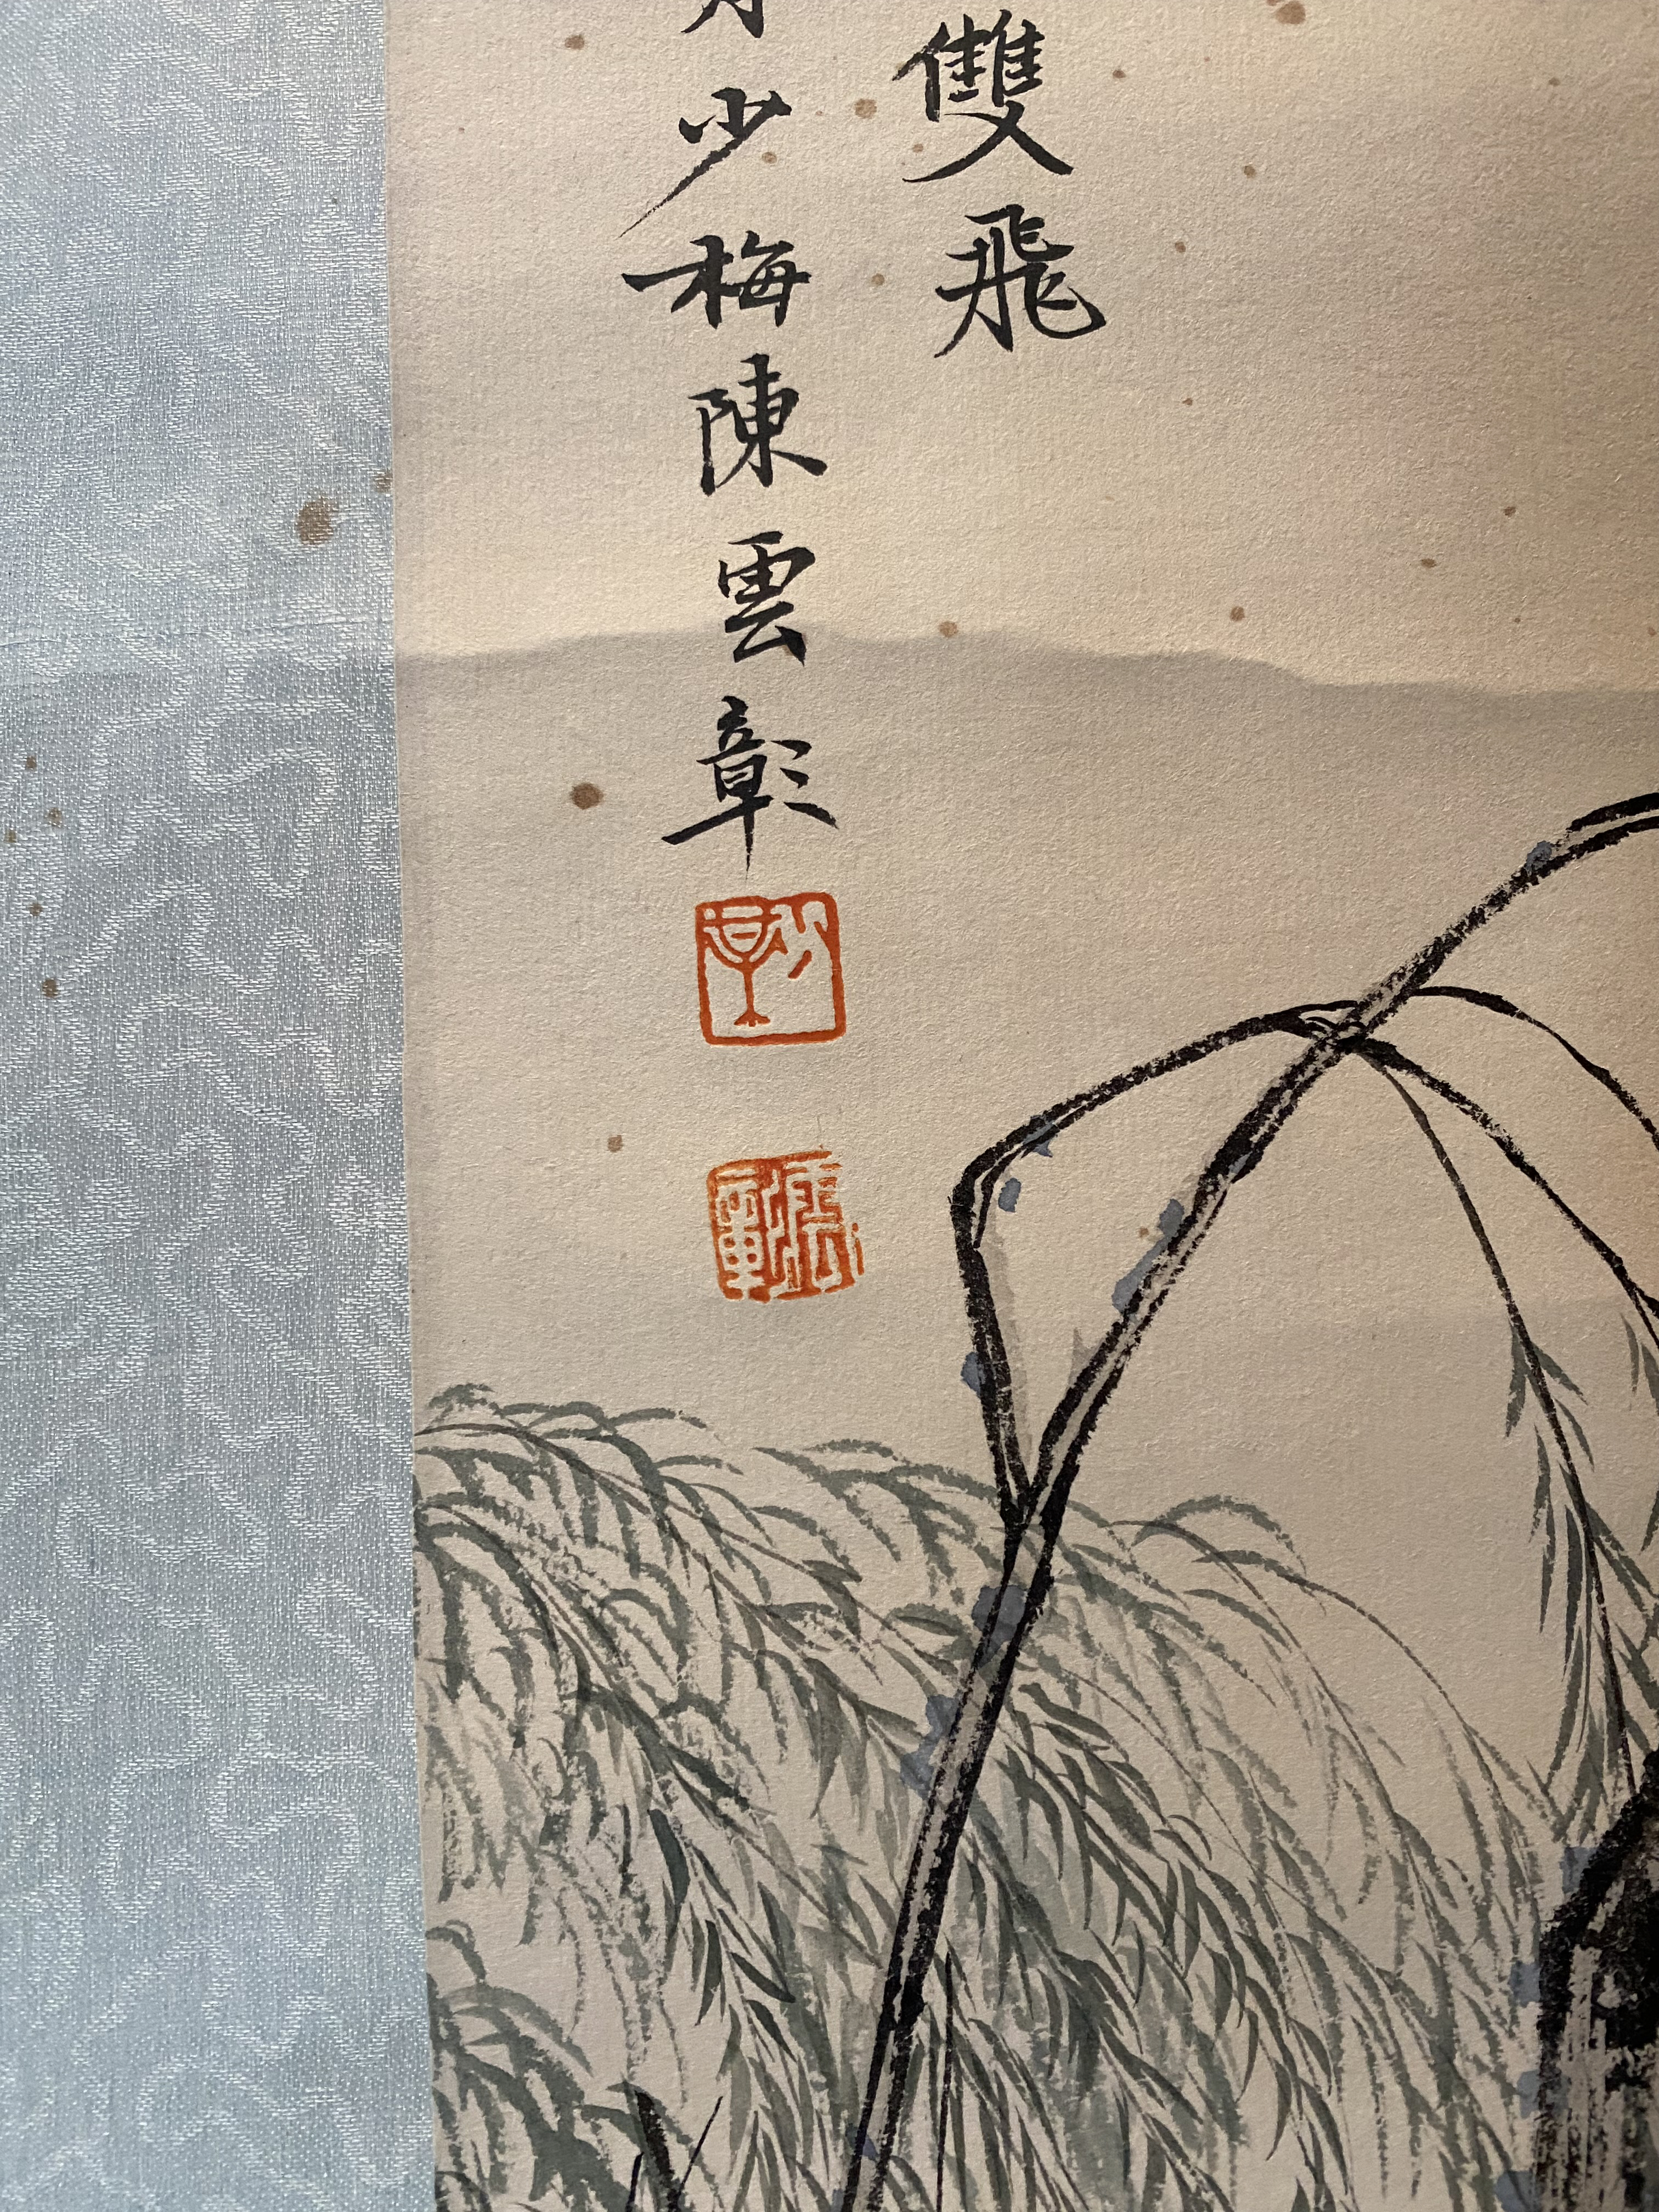 雙飛
少梅陳雲彰